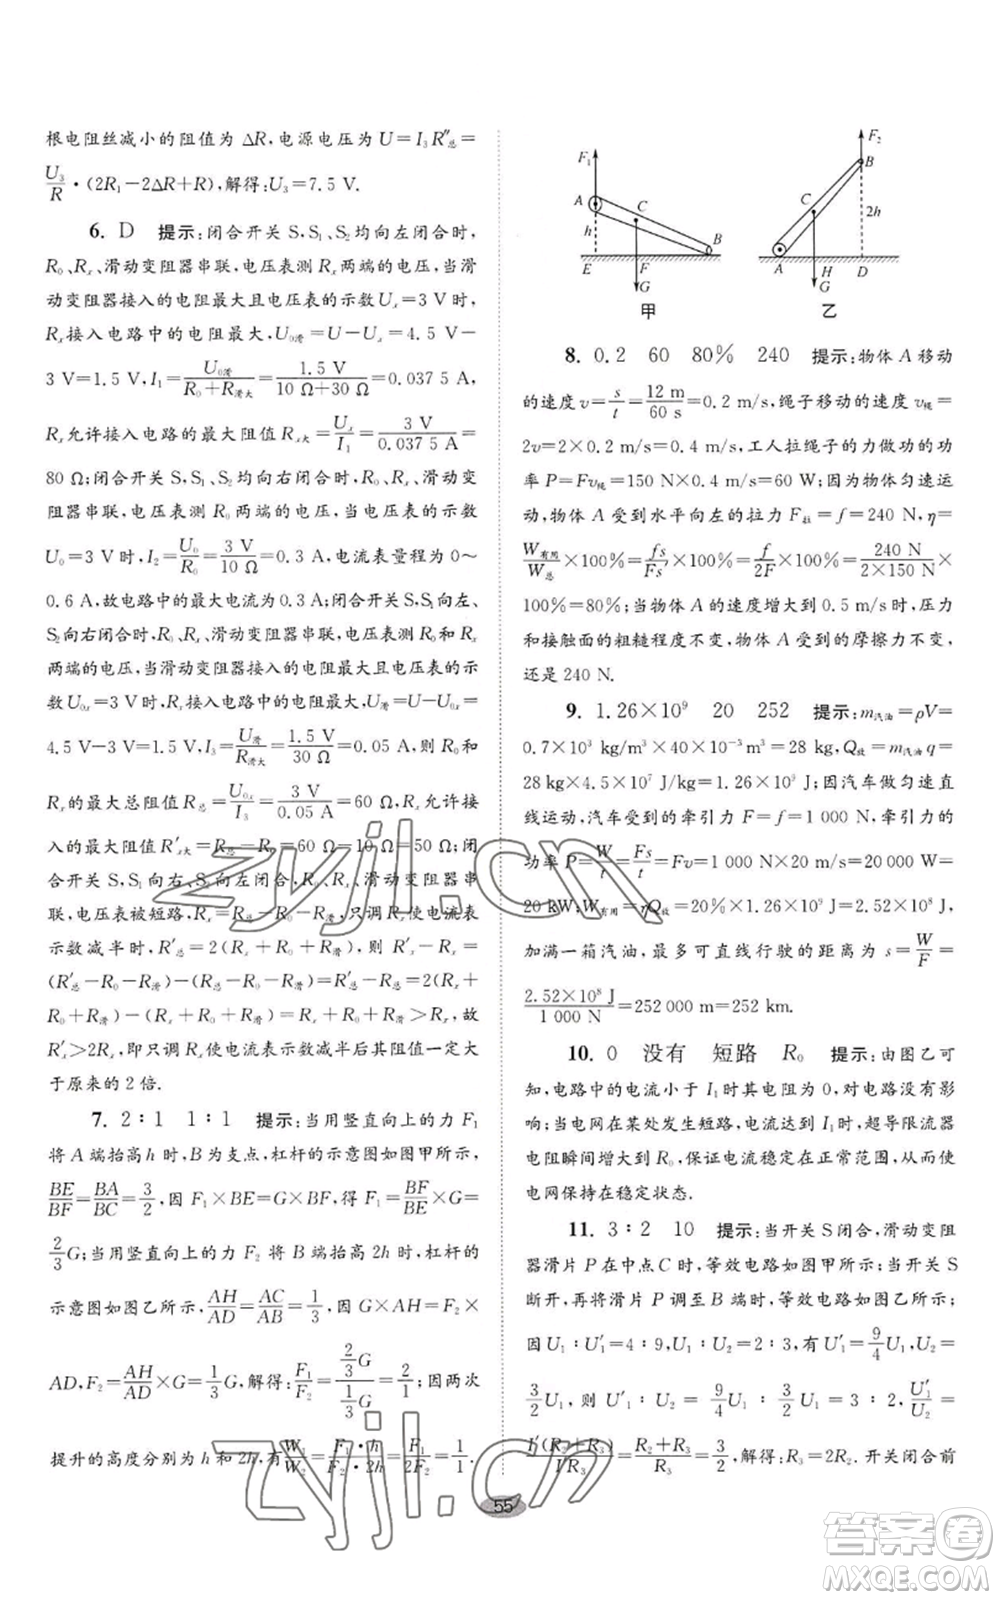 根电阻丝减小的阻值为 ΔR，电源电压为 U＝I₃R″总＝
U₃/R·(2R₁－2ΔR＋R)，解得：U₃＝7.5 V.
6. D　提示：闭合开关 S、S₁、S₂ 均向左闭合时，
R₀、Rₓ、滑动变阻器串联，电压表测 Rₓ 两端的电压，当滑
动变阻器接入的电阻最大且电压表的示数 Uₓ＝3 V 时，
Rₓ接入电路中的电阻最大，U₀滑＝U－Uₓ＝4.5 V－
3 V＝1.5 V，I₁＝U₀滑/(R₀＋R滑大)＝1.5 V/(10 Ω＋30 Ω)＝0.037 5 A，
Rₓ允许接入电路的最大阻值 Rₓ大＝Uₓ/I₁＝3 V/0.037 5 A＝
80 Ω；闭合开关 S、S₁、S₂ 均向右闭合时，R₀、Rₓ、滑动变
阻器串联，电压表测 R₀ 两端的电压，当电压表的示数
U₀＝3 V 时，I₂＝U₀/R₀＝3 V/10 Ω＝0.3 A，电流表量程为 0～
0.6 A，故电路中的最大电流为 0.3 A；闭合开关 S、S₁向左、
S₂向右闭合时，R₀、Rₓ、滑动变阻器串联，电压表测 R₀和 Rₓ
两端的电压，当滑动变阻器接入的电阻最大且电压表的示
数 U₀ₓ＝3 V 时，Rₓ接入电路中的电阻最大，U滑＝U－U₀ₓ＝
4.5 V－3 V＝1.5 V，I₃＝U滑/R滑大＝1.5 V/30 Ω＝0.05 A，则 R₀和
Rₓ 的最大总阻值 R总＝U₀ₓ/I₃＝3 V/0.05 A＝60 Ω，Rₓ允许接
入的最大阻值 R′ₓ大＝R总－R₀＝60 Ω－10 Ω＝50 Ω；闭
合开关 S、S₁向右、S₂向左闭合，R₀、Rₓ、滑动变阻器串
联，电压表被短路，Rₓ＝R总－R₀－R滑，只调 Rₓ使电流表
示数减半时，R′总＝2(Rₓ＋R₀＋R滑)，则 R′ₓ－Rₓ＝
(R′总－R₀－R滑)－(R总－R₀－R滑)＝R′总－R总＝2(Rₓ＋
R₀＋R滑)－(Rₓ＋R₀＋R滑)＝Rₓ＋R₀＋R滑＞Rₓ，故
R′ₓ＞2Rₓ，即只调 Rₓ使电流表示数减半后其阻值一定大
于原来的 2 倍.
7. 2∶1　1∶1　提示：当用竖直向上的力 F₁
将 A 端抬高 h 时，B 为支点，杠杆的示意图如图甲所示，
BE/BF＝BA/BC＝3/2，因 F₁×BE＝G×BF，得 F₁＝BF/BE×G＝
2/3G；当用竖直向上的力 F₂ 将 B 端抬高 2h 时，杠杆的
示意图如图乙所示，AH/AD＝AC/AB＝1/3，因 G×AH＝F₂×
AD，F₂＝AH/AD×G＝1/3G，解得：F₁/F₂＝(2/3G)/(1/3G)＝2/1；因两次
提升的高度分别为 h 和 2h，有W₁/W₂＝F₁·h/F₂·2h＝F₁/F₂＝1/1.
F₁
A
C
B
h
E
F
G
甲
F₂
B
C
2h
A
H
D
G
乙
8. 0.2　60　80%　240　提示：物体 A 移动
的速度 v＝s/t＝12 m/60 s＝0.2 m/s，绳子移动的速度 v绳＝
2v＝2×0.2 m/s＝0.4 m/s，工人拉绳子的力做功的功
率 P＝Fv绳＝150 N×0.4 m/s＝60 W；因匀速运
动，物体 A 受到水平向左的拉力 F拉＝f＝240 N，η＝
W有用/W总×100%＝fs/Fs′×100%＝f/2F×100%＝240 N/(2×150 N)×
100%＝80%；当物体 A 的速度增大到 0.5 m/s 时，压力
和接触面的粗糙程度不变，物体 A 受到的摩擦力不变，
还是 240 N.
9. 1.26×10⁹　20　252　提示：m汽油＝ρV＝
0.7×10³ kg/m³×40×10⁻³m³＝28 kg，Q放＝m汽油q＝
28 kg×4.5×10⁷ J/kg＝1.26×10⁹ J；因汽车做匀速直
线运动，汽车受到的牵引力 F＝f＝1 000 N，牵引力的
功率 P＝W/t＝Fs/t＝Fv＝1 000 N×20 m/s＝20 000 W＝
20 kW，W有用＝ηQ放＝20%×1.26×10⁹ J＝2.52×10⁸ J，
加满一箱汽油，最多可直线行驶的距离为 s＝W/F＝
2.52×10⁸ J/1 000 N＝252 000 m＝252 km.
10. 0　没有　短路　R₀　提示：由图乙可
知，电路中的电流小于 I₁ 时其电阻为 0，对电路没有影
响；当电网在某处发生短路，电流达到 I₁时，超导限流器
电阻瞬间增大到 R₀，保证电流稳定在正常范围，从而使
电网保持在稳定状态.
11. 3∶2　10　提示：当开关 S 闭合，滑动变阻
器滑片 P 在中点C 时，等效电路如图甲所示；当开关 S
断开，再将滑片 P 调至 B 端时，等效电路如图乙所示；
因 U₁∶U′₁＝4∶9，U₁∶U₂＝2∶3，有 U′₁＝9/4U₁，U₂＝
3/2U₁，则 U′₁∶U₂＝9/4U₁∶3/2U₁＝3∶2，U′₁/U₂＝
I′(R₂＋R₃)/I′R₃＝(R₂＋R₃)/R₃＝3/2，解得：R₃＝2R₂. 开关闭合前
55
zyjl.cn
zyjl.cn
答案圈
MXQE.COM